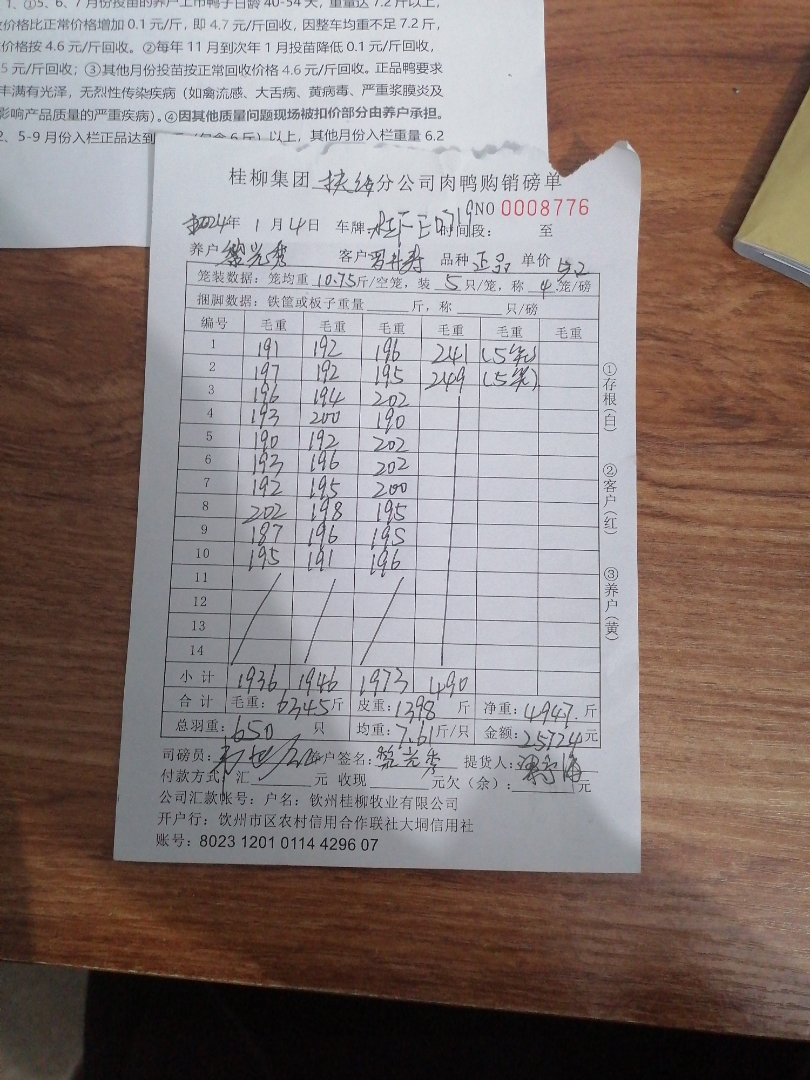 1、①5、6、7月份投苗的养户上市鸭子日龄40-54天，重量达7.2斤以上，
价格比正常价格增加0.1元/斤，即4.7元/斤回收，因整车均重不足7.2斤，
价格按4.6元/斤回收。②每年11月到次年1月投苗降低0.1元/斤，
5元/斤回收；③其他月份投苗按正常回收价格4.6元/斤回收。正品鸭要求
丰满有光泽，无烈性传染疾病（如禽流感、大舌病、黄病毒、严重浆膜炎及
影响产品质量的严重疾病）。④因其他质量问题现场被扣价部分由养户承担。
2、5-9月份入栏正品达到 以上，其他月份入栏重量6.2
桂柳集团 扶绥 分公司肉鸭购销磅单
NO 0008776
2024年 1月 4日 车牌: 时间段: 至
养户 黎兰秀 客户 品种 正品 单价 5.2
笼装数据: 笼均重 10.75 斤/空笼, 装 5 只/笼, 称 4 笼/磅
捆脚数据: 铁筐或板子重量 斤, 称 只/磅
编号 毛重 毛重 毛重 毛重 毛重 毛重
1 191 192 196 241 (5笼)
2 197 192 195 249 (5笼)
3 196 194 202
4 193 200 190
5 190 192 202
6 193 196 202
7 192 195 200
8 202 198 195
9 187 196 195
10 195 191 196
11
12
13
14
小计 1936 1946 1973 490
合计 毛重: 6345 斤 皮重: 1398 斤 净重: 4947 斤
总羽重: 650 只 均重: 7.61 斤/只 金额: 25724 元
司磅员: 养户签名: 黎兰秀 提货人:
付款方式: 汇 元 收现 元欠（余）: 元
公司汇款帐号: 户名: 钦州桂柳牧业有限公司
开户行: 钦州市区农村信用合作联社大垌信用社
账号: 8023 1201 0114 4296 07
①存根(白)
②客户(红)
③养户(黄)